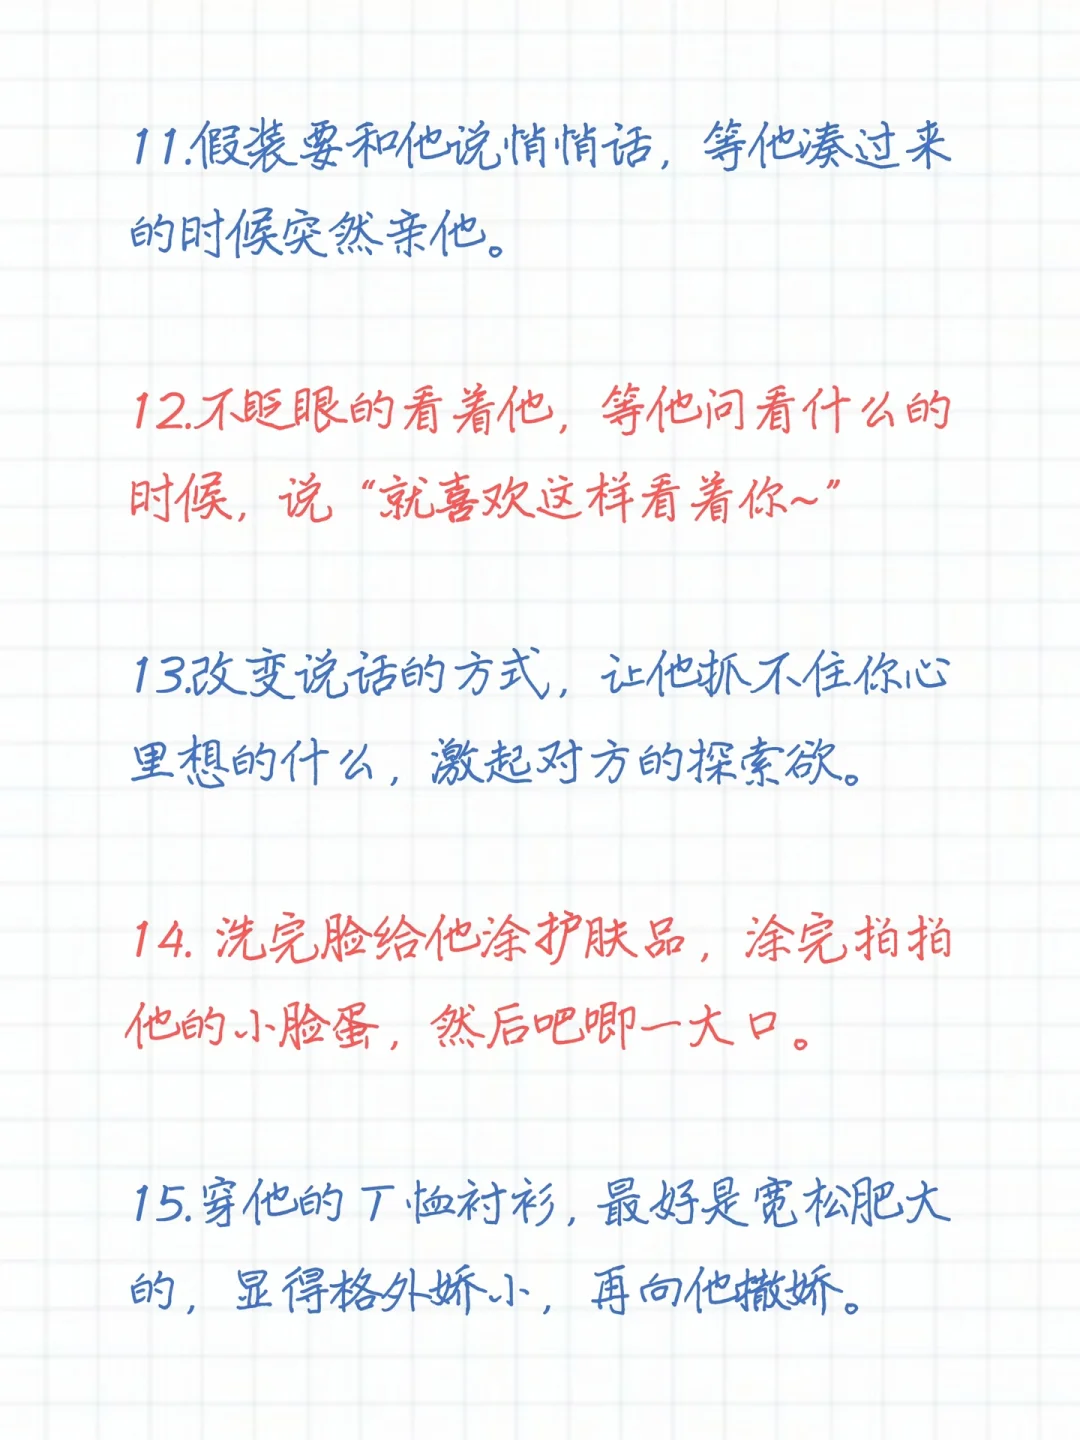 11.假装要和他说悄悄话，等他凑过来
的时候突然亲他。
12.不眨眼的看着他，等他问看什么的
时候，说“就喜欢这样看着你~”
13.改变说话的方式，让他抓不住你心
里想的什么，激起对方的探索欲。
14. 洗完脸给他涂护肤品，涂完拍拍
他的小脸蛋，然后吧唧一大口。
15.穿他的T恤衬衫，最好是宽松肥大
的，显得格外娇小，再向他撒娇。